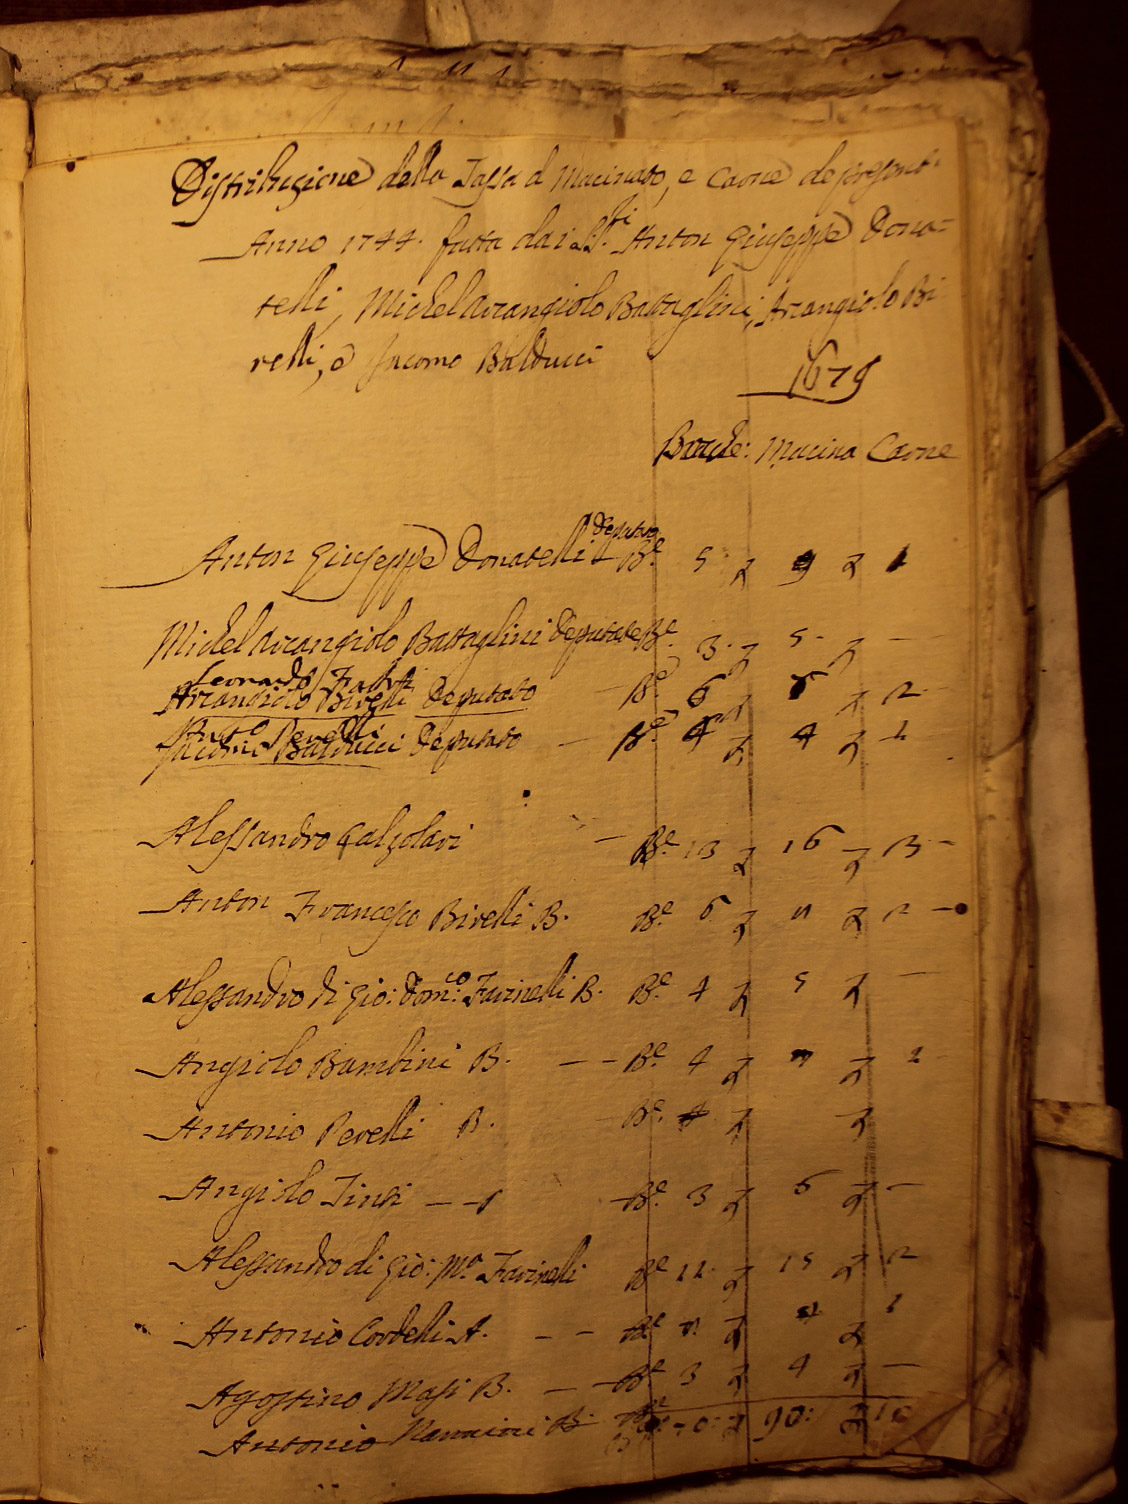 Distribuzione della Tassa d Macinato, e Carne de presente
Anno 1744. fatta dai SS.ri Anton Giuseppe Dona=
telli, Michel Arcangiolo Battaglini, Arcangiolo Bi
relli, e Jacomo Balducci
1679
Bocche: Macina Carne
Deputato
Anton Giuseppe Donatelli Be. 5 2 9 2 1
Michel Arcangiolo Battaglini Deputato Be. 3. 2 5. 2 —
Leonardo
Arcangiolo Birelli Deputato — Be 6 2 2 2
Perelli
Jacomo Balducci Deputato — Be. 4 2 4 2 1
Alessandro Calzolari — Be. 13 2 16 2 3 -
Anton Francesco Birelli B. Be. 6 2 11 2 2 -
Alessandro di Gio: Dom:co Farinelli B. Be. 4 2 5 2 —
Angiolo Bambini B. — — Be. 4 2 2 1
Antonio Perelli B. — Be. 4 2 2
Angiolo Tinti — — Be. 3 2 6 2 —
Alessandro di Gio: Ma. Farinelli Be 12. 2 15 2 2
Antonio Cordelli A. — — Be. 2 2 1
Agostino Masi B. — — Be. 3 2 4 2 —
Antonio B. 2 90: